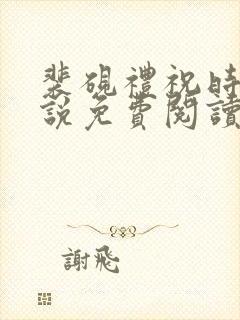 裴硯禮祝時
說免費閱讀
謝飛